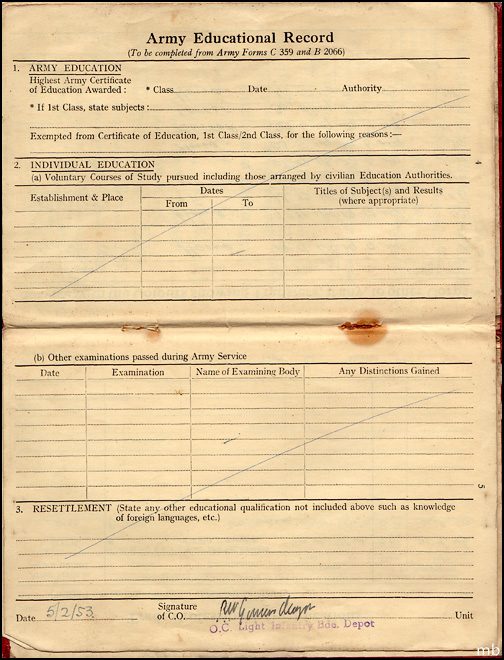 Army Educational Record
(To be completed from Army Forms C 359 and B 2066)
1. ARMY EDUCATION
Highest Army Certificate
of Education Awarded : * Class Date Authority
* If 1st Class, state subjects :
Exempted from Certificate of Education, 1st Class/2nd Class, for the following reasons :—
4
2. INDIVIDUAL EDUCATION
(a) Voluntary Courses of Study pursued including those arranged by civilian Education Authorities.
Establishment & Place Dates Titles of Subject(s) and Results
From To (where appropriate)
(b) Other examinations passed during Army Service
Date Examination Name of Examining Body Any Distinctions Gained
5
3. RESETTLEMENT (State any other educational qualification not included above such as knowledge
of foreign languages, etc.)
Date 5/2/53 Signature
of C.O. Major Unit
O.C. Light Infantry Bde. Depot
mb